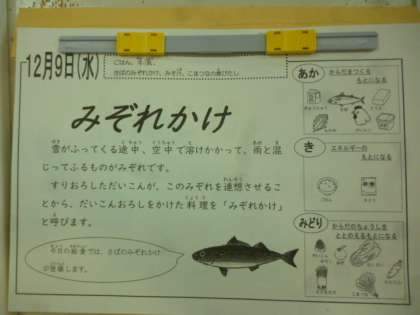 12月9日(水)
ごはん、牛乳、
さばのみぞれかけ、みそ汁、こまつなの煮びたし
みぞれかけ
雪がふってくる途中、空中で溶けかかって、雨と混
じってふるものがみぞれです。
すりおろしただいこんが、このみぞれを連想させるこ
とから、だいこんおろしをかけた料理を「みぞれかけ」
と呼びます。
今日の給食では、さばのみぞれかけ
が登場します。
あか
からだをつくる
もとになる
き
エネルギーの
もとになる
ごはん
みどり
からだのちょうしを
ととのえるもとになる
こまつな